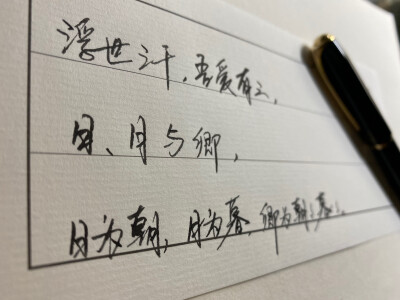 浮世三千,吾爱有三,
日、月与卿,
日为朝,月为暮,卿为朝々暮々。